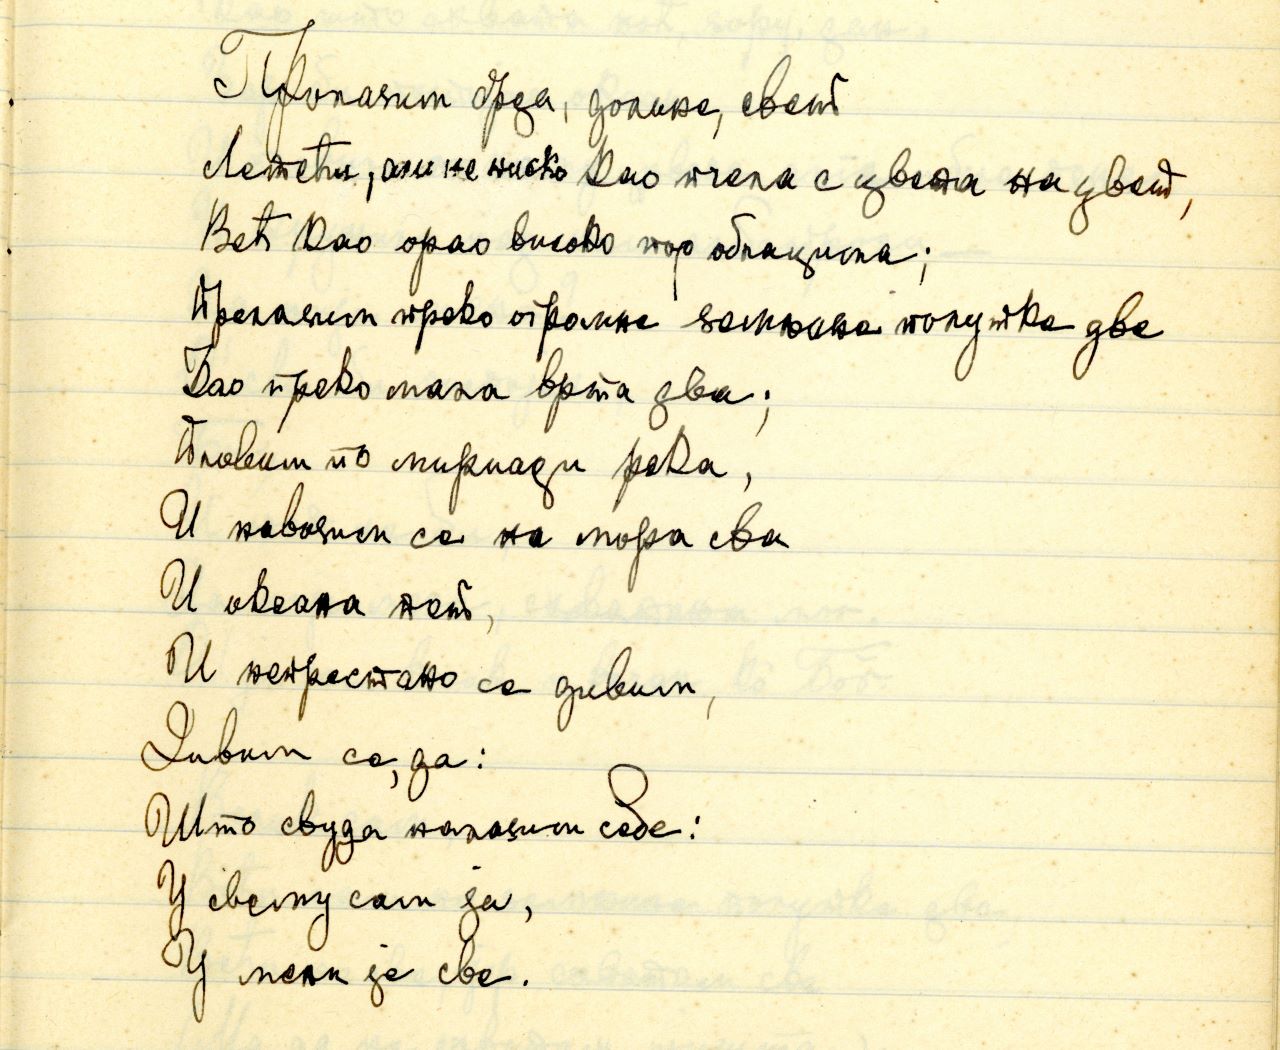 Пролазим брда, долине, свет
Летећи, али не ниско као пчела с цвета на цвет,
Већ као орао високо пор облацима;
Прелазим преко огромне земљине полутке две
Као преко мала врта два;
Пловим по миријади река,
И навозим се на мора сва
И океана пет,
И непрестано се дивим,
Дивим се, да:
Што свуда налазим себе:
У свему сам ја,
У мени је све.